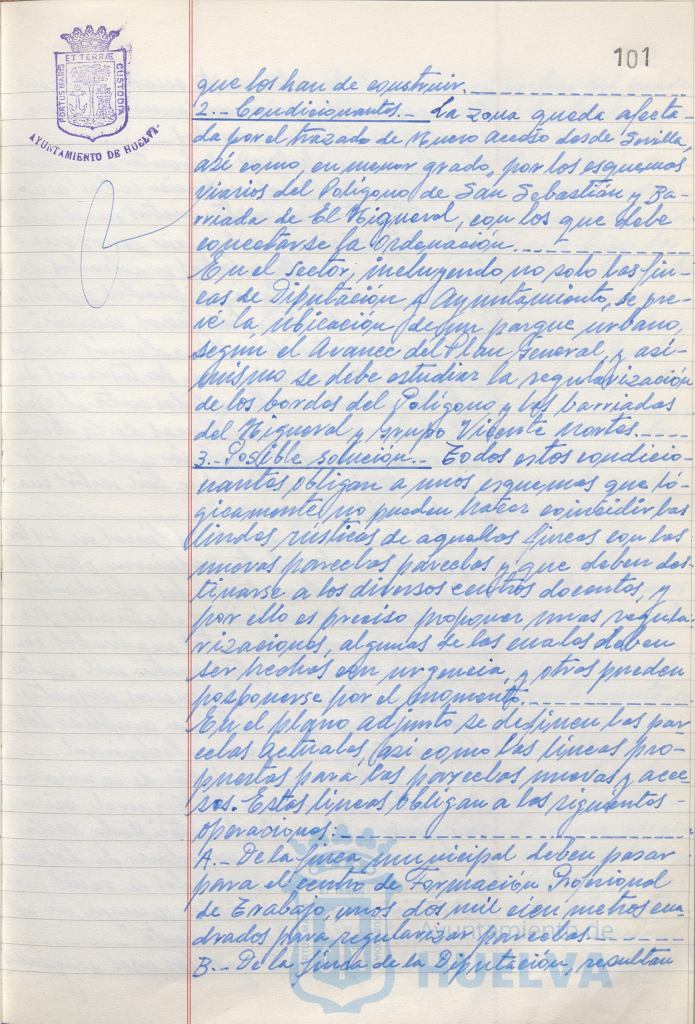 101
PORTUS MARIS ET TERRÆ CUSTODIA
AYUNTAMIENTO DE HUELVA
que los han de construir.
2.- Condicionantes.- La zona queda afecta-
da por el trazado de Nuevo Acceso desde Sevilla,
así como, en menor grado, por los esquemas
viarios del Polígono de San Sebastián y Ba-
rriada de El Higueral, con los que debe
conectarse la Ordenación.
En el sector, incluyendo no solo las fin-
cas de Diputación y Ayuntamiento, se pre-
vé la ubicación de un parque urbano,
según el Avance del Plan General, y asi-
mismo se debe estudiar la regularización
de los bordes del Polígono y las barriadas
del Higueral y Grupo Vicente Hortas.
3.- Posible solución.- Todos estos condicio-
nantes obligan a unos esquemas que ló-
gicamente no pueden hacer coincidir las
lindes rústicas de aquellas fincas con las
nuevas parcelas parcelas y que deben des-
tinarse a los diversos centros docentes, y
por ello es preciso proponer unas regula-
rizaciones, algunas de las cuales deben
ser hechas con urgencia, y otras pueden
posponerse por el momento.
En el plano adjunto se definen las par-
celas actuales, así como las líneas pro-
puestas para las parcelas nuevas y acce-
sos. Estas líneas obligan a las siguientes
operaciones:
A.- De la finca municipal deben pasar
para el centro de Formación Profesional
de Trabajo, unos dos mil cien metros cua-
drados para regularizar parcelas.
B.- De la finca de la Diputación, resultan
Ayuntamiento de
HUELVA